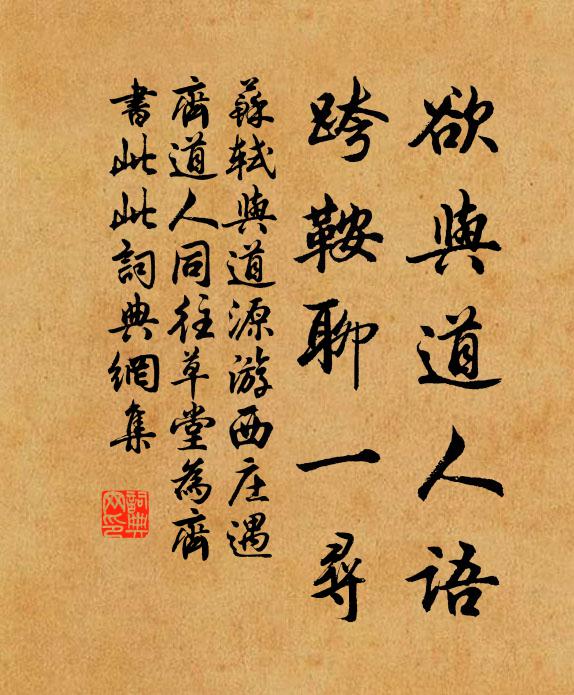 欲與道人語
跨鞍聊一尋
蘇軾與道源游西庄遇
齊道人同往草堂為齊
書此此詞典網集